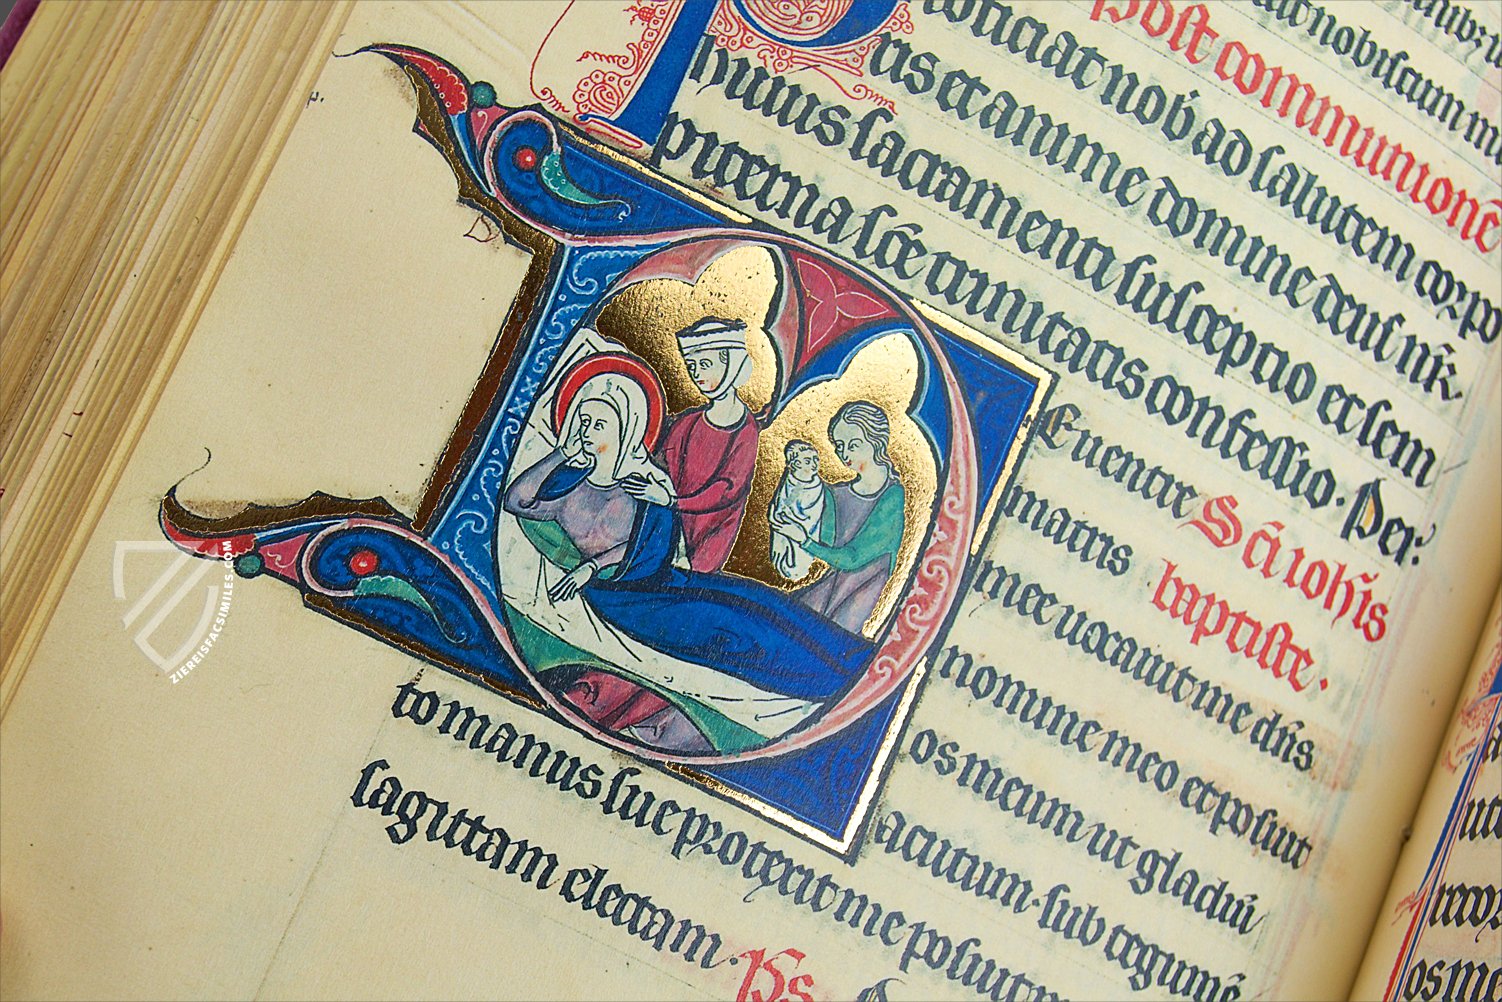 nobiscum
Post communionē
Proficiat nob̄ ad salutem corpo
ris et anime domine deus nr̄.
huius sacramenti susceptio et sem
piterna sc̄e trinitatis confessio. Per.
E uentre Sc̄i ioh̄is
matris baptiste.
mee uocauit me dn̄s
nomine meo et posuit
os meum ut gladiū
acutum. sub tegumē
to manus sue protexit me posuit
sagittam electam. Ps
p.
D
os me
ZIEREISFACSIMILES.COM